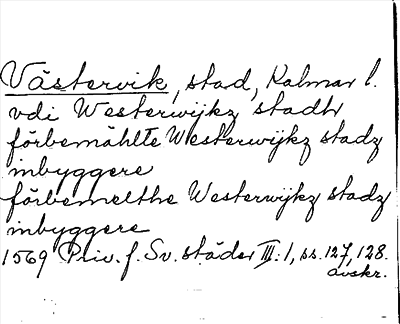 Västervik, stad, Kalmar l.
vdi Westerwijkz stadh
förbemählte Westerwijkz stadz
inbyggere
förbemelthe Westerwijkz stadz
inbyggere
1569 Priv. f. Sv. städer III:1, ss. 127, 128.
avskr.